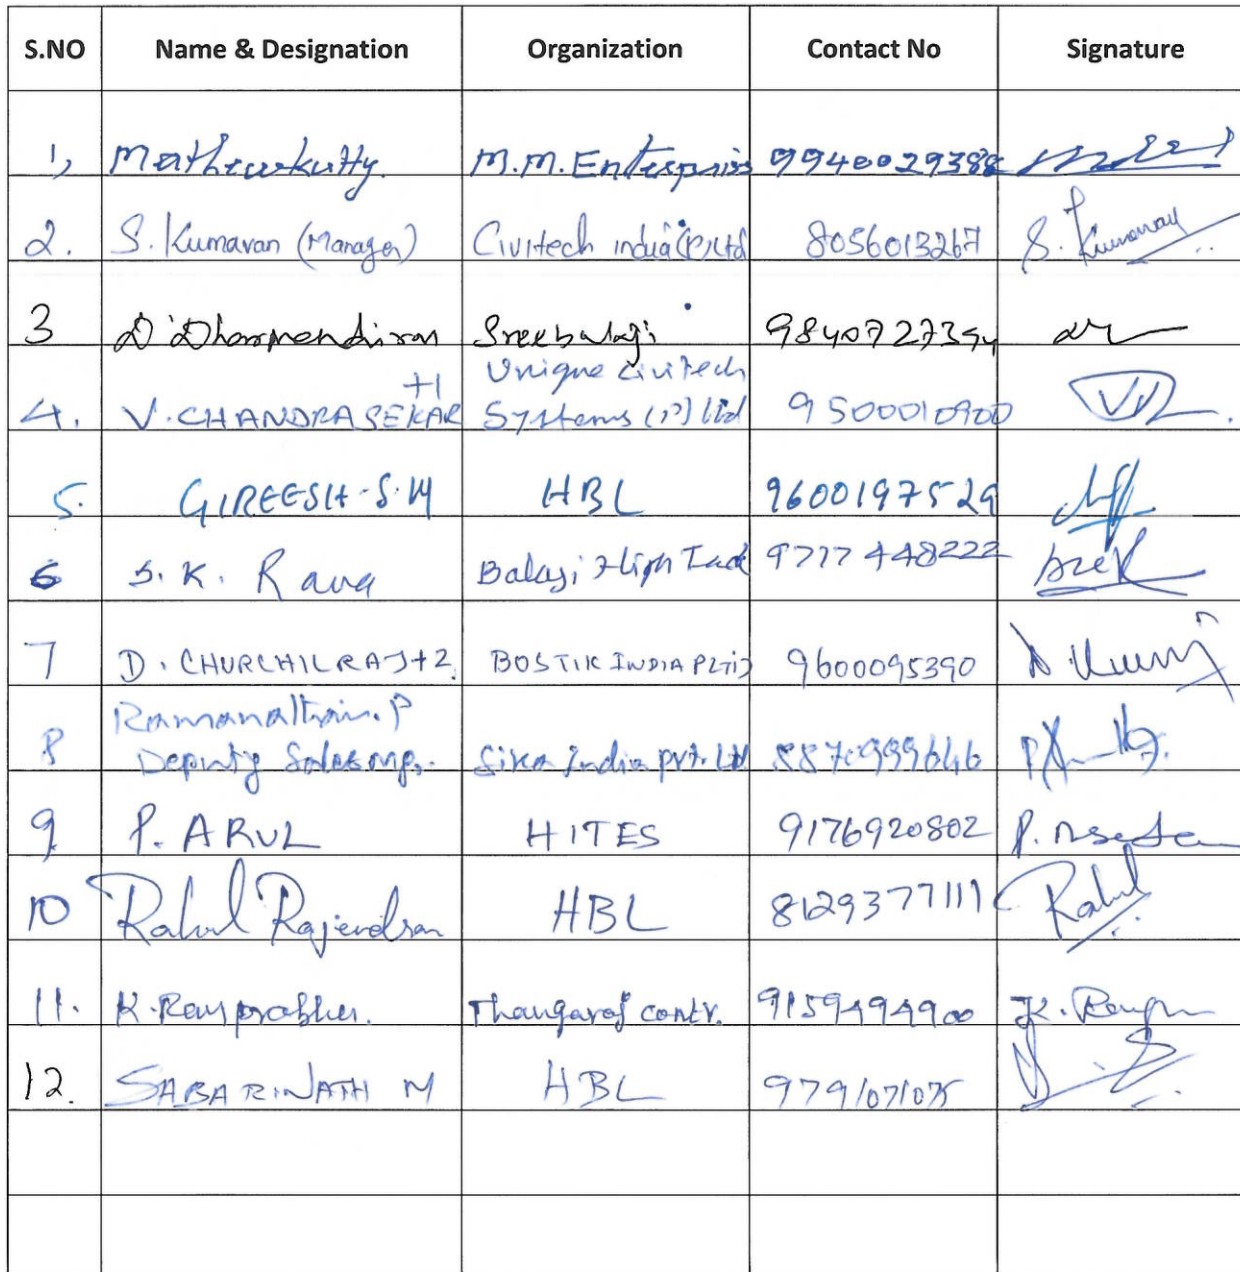 S.NO Name & Designation Organization Contact No Signature
1, Mathewkutty. M.M. Enterpriss 9940029388
2. S. Kumaran (Manager) Civitech india (P) Ltd 8056013267 S. Kumaran
3 D. Dharmendiran Sreebalaji 9840727394
+1 Unique Civitech
4. V. CHANDRASEKAR Systems (P) Ltd 9500010900
5. GIREESH.S.M HBL 9600197529
6 S.K. Rana Balaji High Tech 9777448222
7 D. CHURCHILRAJ+2. BOSTIK INDIA PLTD 9600095390
Ramanathan. P
8 Deputy Sales mgr. Sika India pvt. Ltd 8870999646
9 P. ARUL HITES 9176920802
10 Rahul Rajendran HBL 8129377111 Rahul
11. K. Ramprabhu. Thangaraj contr. 9159494900
12. SABARINATH M HBL 9791071075